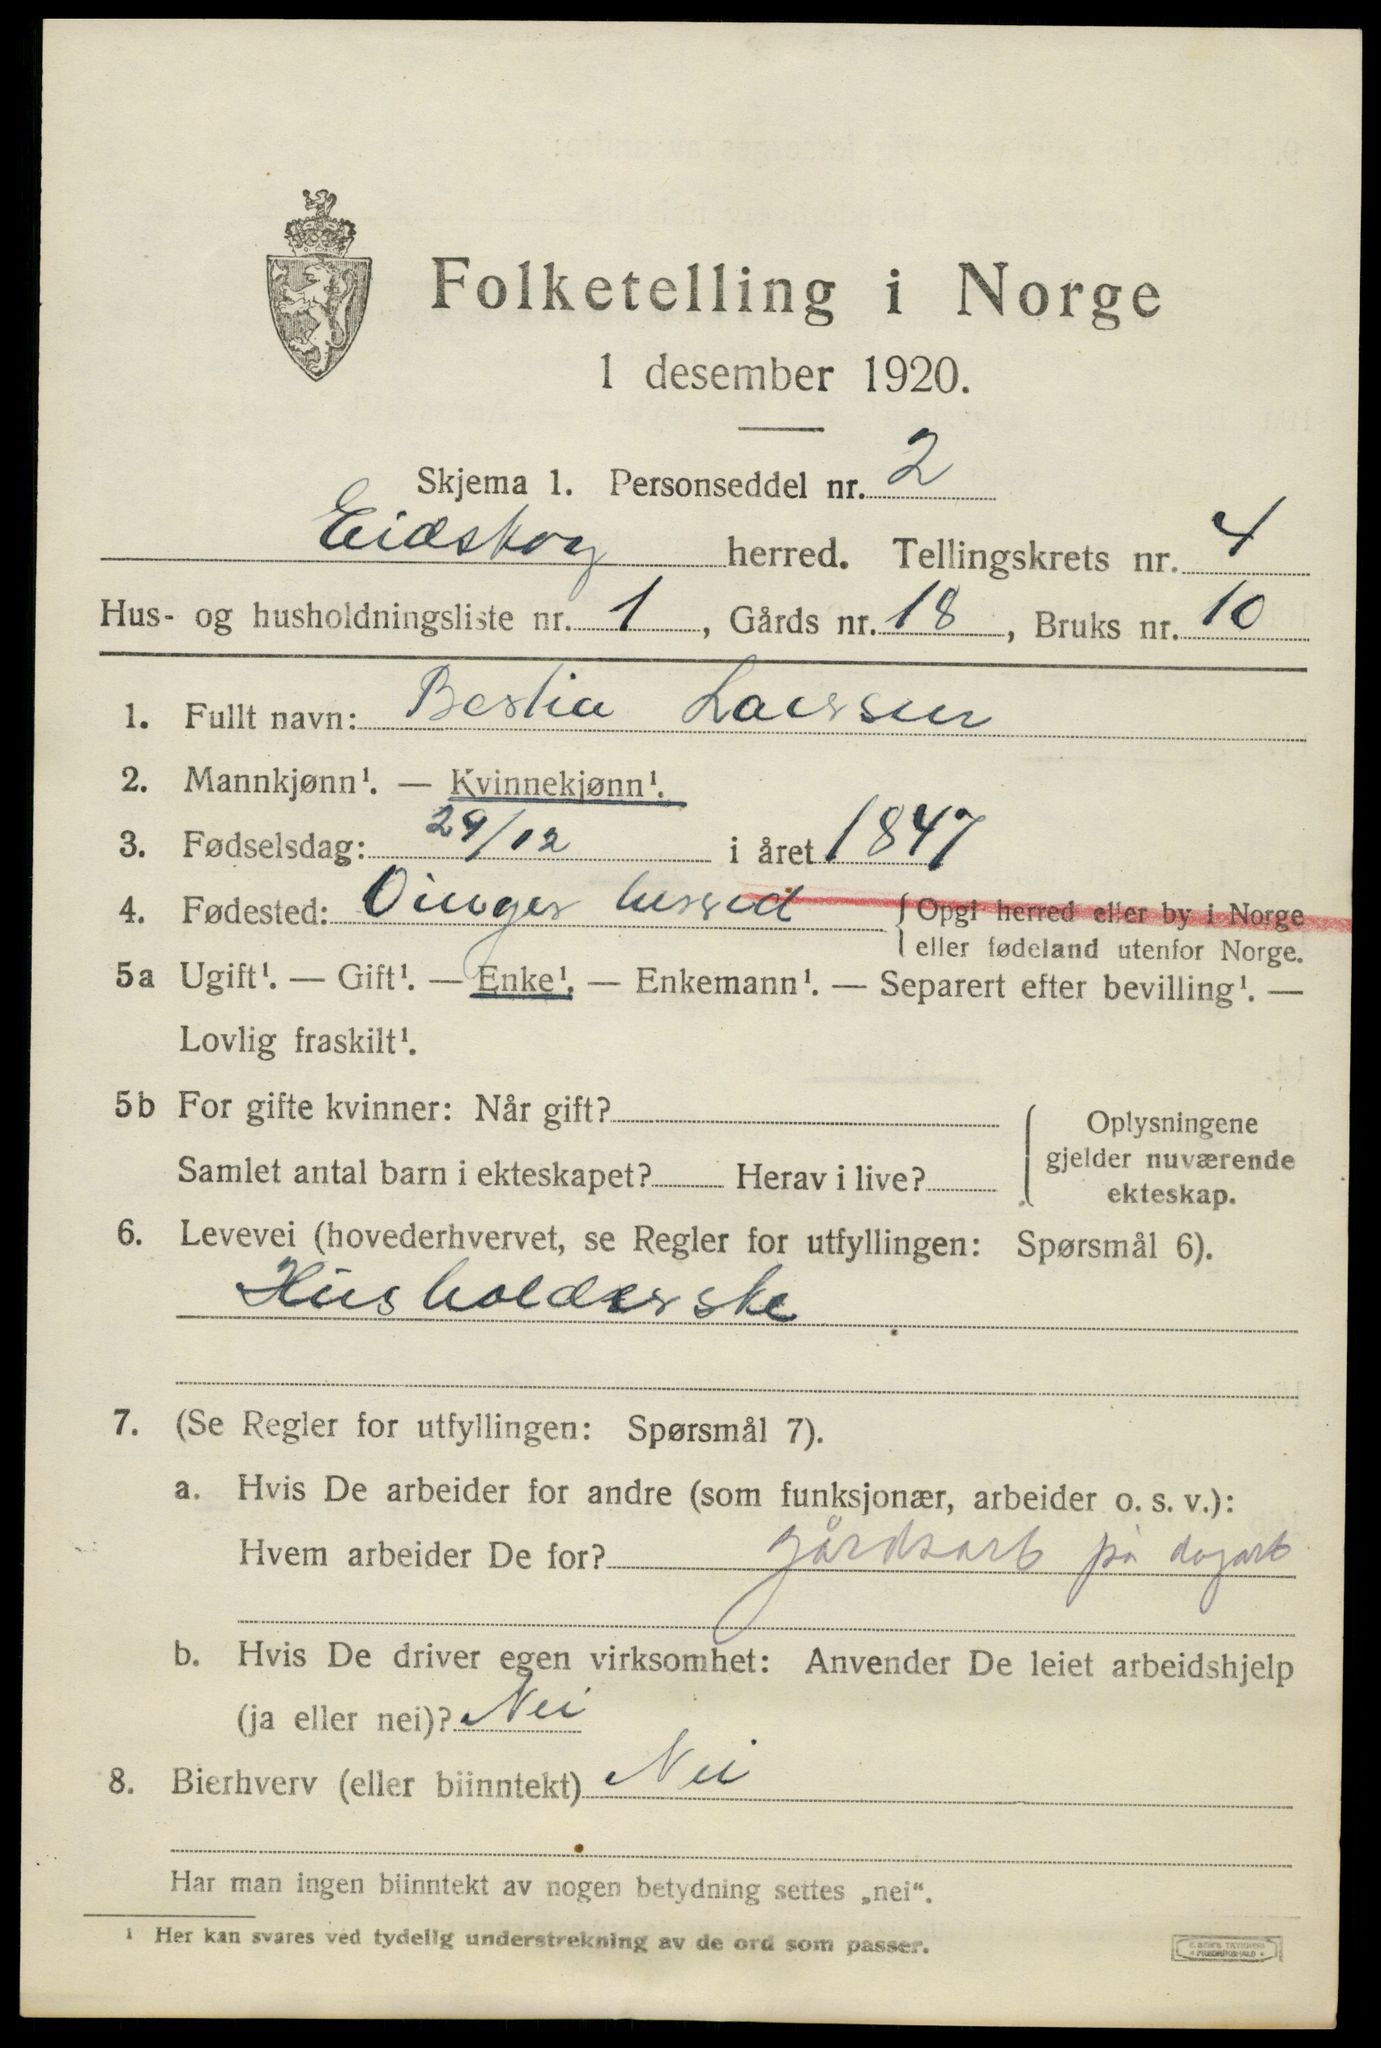 Folketelling i Norge
1 desember 1920.
Skjema 1. Personseddel nr. 2
Eidskog herred. Tellingskrets nr. 4
Hus- og husholdningsliste nr. 1, Gårds nr. 18, Bruks nr. 10
1. Fullt navn: Larssen
2. Mannkjønn¹. — Kvinnekjønn¹.
3. Fødselsdag: 29/12 i året 1847
4. Fødested: Vinger herred { Opgi herred eller by i Norge
eller fødeland utenfor Norge.
5a Ugift¹. — Gift¹. — Enke¹. — Enkemann¹. — Separert efter bevilling¹. —
Lovlig fraskilt¹.
5b For gifte kvinner: Når gift?
Samlet antal barn i ekteskapet? Herav i live?
{ Oplysningene
gjelder nuværende
ekteskap.
6. Levevei (hovederhvervet, se Regler for utfyllingen: Spørsmål 6).
Husholderske
7. (Se Regler for utfyllingen: Spørsmål 7).
a. Hvis De arbeider for andre (som funksjonær, arbeider o. s. v.):
Hvem arbeider De for? gårdsarb på dagarb
b. Hvis De driver egen virksomhet: Anvender De leiet arbeidshjelp
(ja eller nei)? Nei
8. Bierhverv (eller biinntekt) Nei
Har man ingen biinntekt av nogen betydning settes „nei“.
¹ Her kan svares ved tydelig understrekning av de ord som passer.